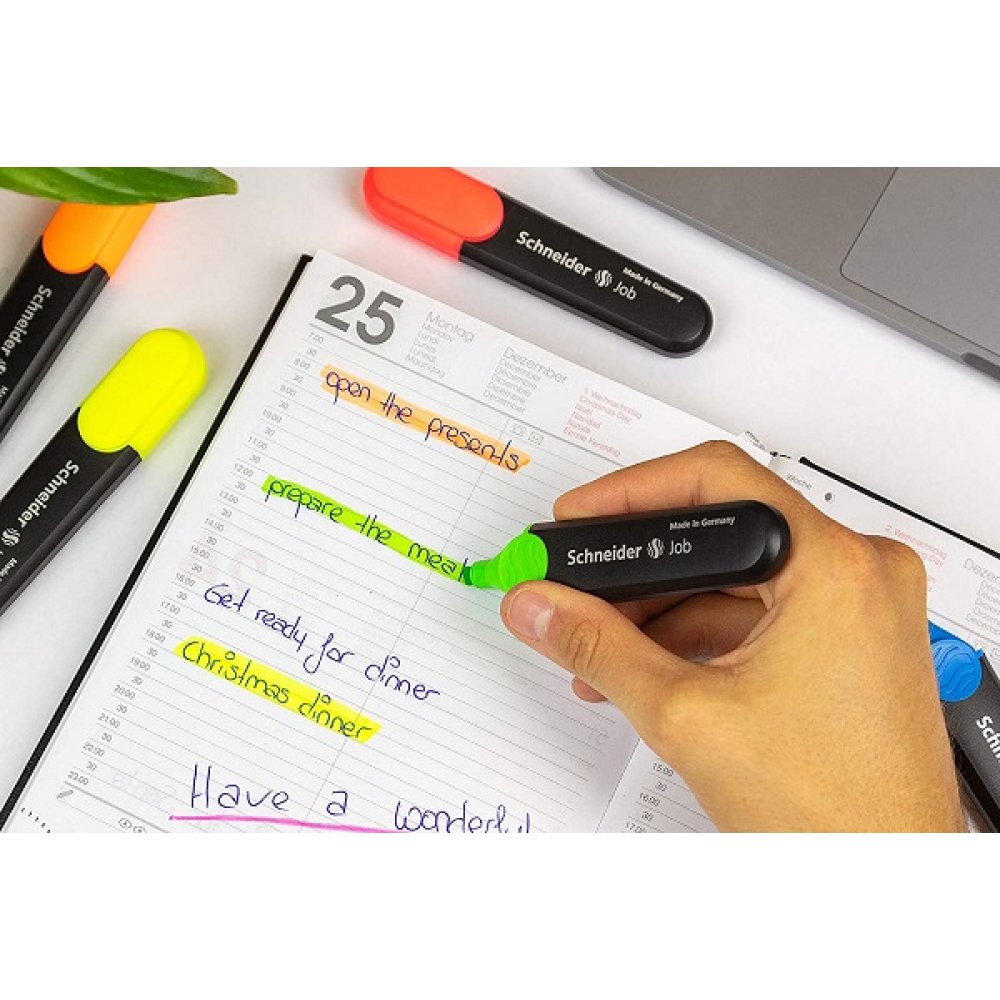 Schneider Job
Made in Germany
Schneider
Schneider
25
Montag
Monday
Lundi
Lunes
Lunedi
Maandag
Dezember
December
Décembre
Diciembre
Dicembre
December
1. Weihnachtstag
Christmas Day
Noël
Navidad
Natale
Eerste Kerstdag
7.00
30
8.00
30
9.00
30
10.00
30
11.00
30
12.00
30
13.00
30
14.00
30
15.00
30
16.00
30
17.00
30
18.00
30
19.00
30
20.00
30
21.00
30
22.00
30
23.00
open the presents
prepare the meal
Get ready for dinner
Christmas dinner
Have a wonderful
Made in Germany
Schneider Job
Woche
2. Weihnachtstag
Dezem
15.00
30
16.00
30
17.00
Schn